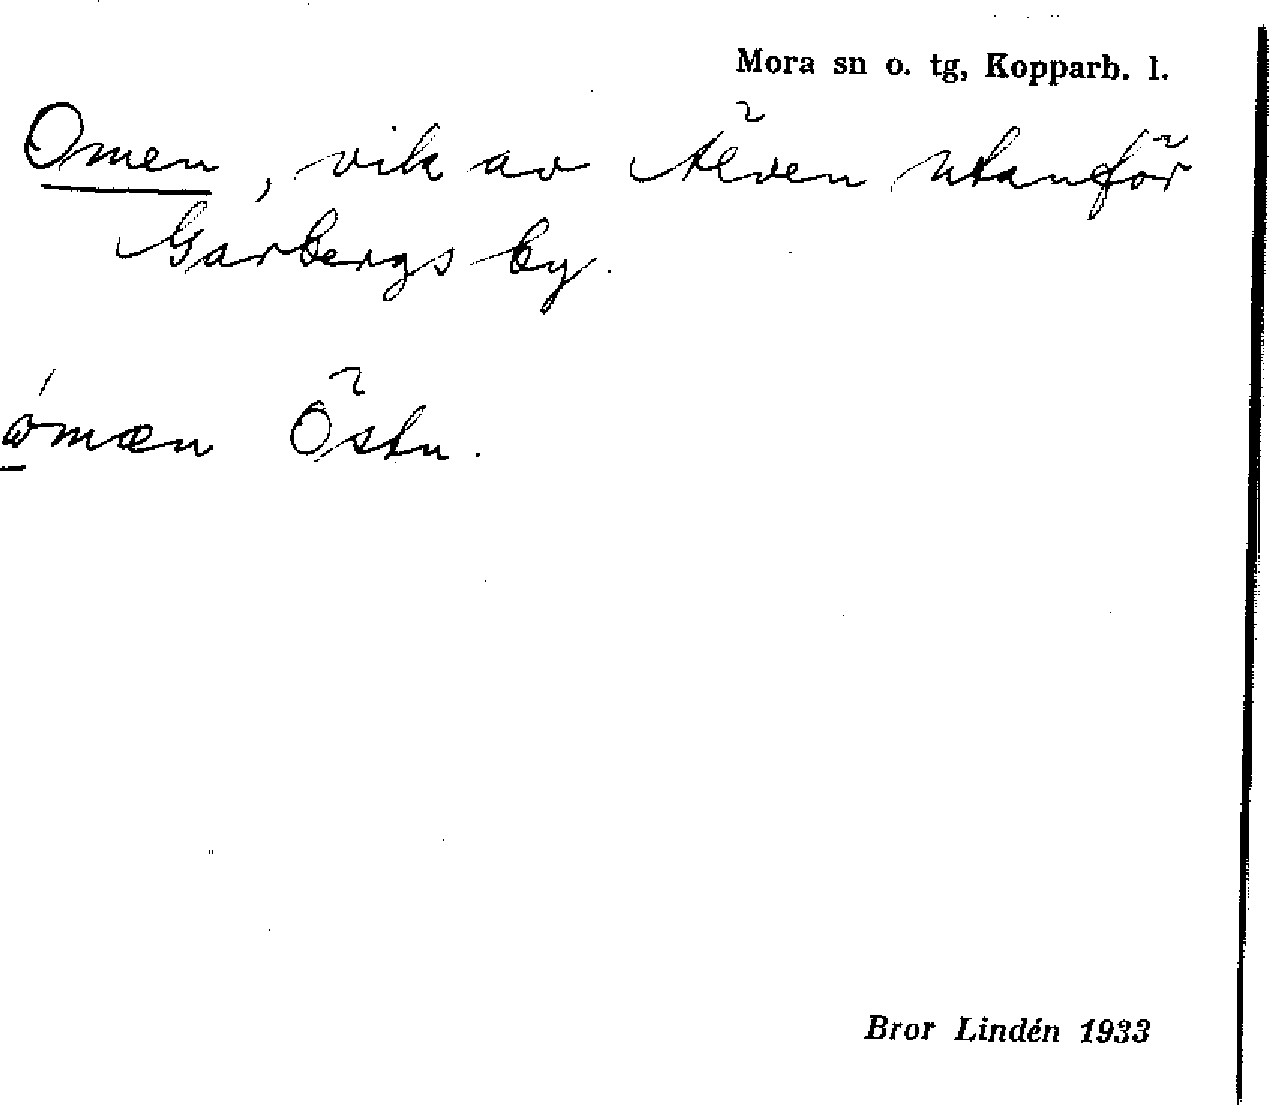 Mora sn o. tg, Kopparb. l.
Omen, vik av Älven utanför
Garbergs by.
ómæn Östn.
Bror Lindén 1933